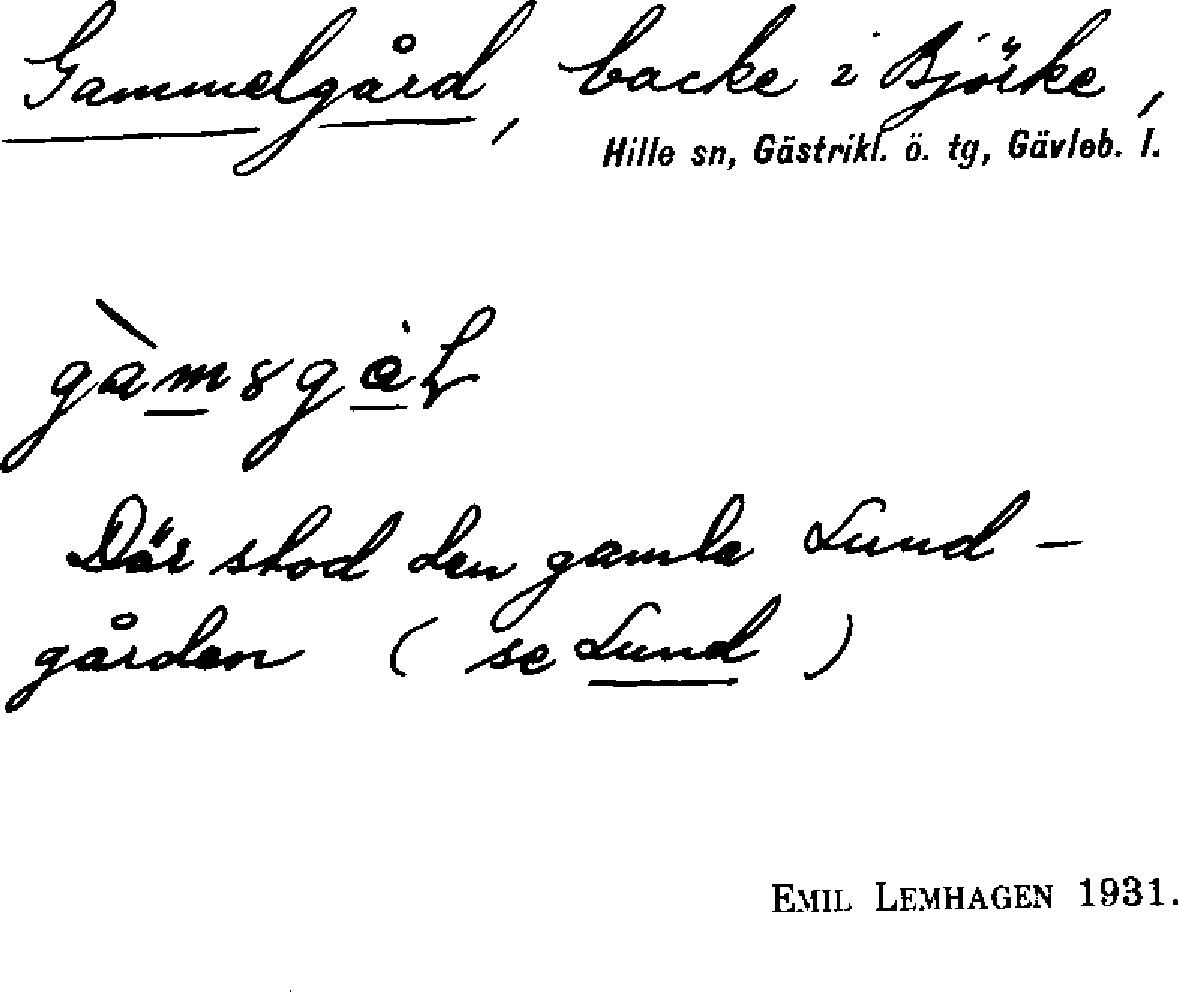 Gammelgård, backe i Björke,
Hille sn, Gästrikl. ö. tg, Gävleb. l.
Där stod den gamla Lund-
gården (se Lund)
EMIL LEMHAGEN 1931.